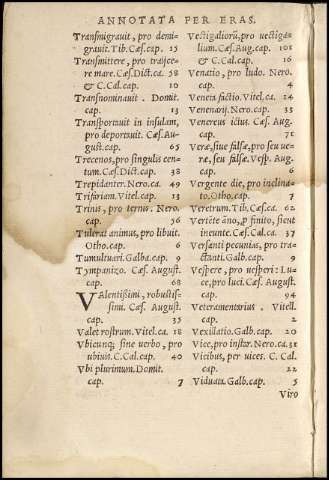 ANNOTATA PER ERAS.
Transmigrauit, pro demi-
grauit. Tib. Cæs. cap. 15
Transmittere, pro traijce-
re mare. Cæs. Dict. ca. 58
& C. Cal. cap. 10
Transnominauit. Domit.
cap. 13
Transportauit in insulam,
pro deportauit. Cæs. Au-
gust. cap. 65
Trecenos, pro singulis cen-
tum. Cæs. Dict. cap. 38
Trepidanter. Nero. ca. 49
Trifariam. Vitel. cap. 13
Trinus, pro ternus. Nero.
cap. 36
Tulerat animus, pro libuit.
Otho. cap. 6
Tumultuari. Galba. cap. 9
Tympanizo. Cæs. August.
cap. 68
VAlentißimi, robustis-
simi. Cæs. August.
cap. 35
Valet rostrum. Vitel. ca. 18
Vbicunq; sine uerbo, pro
ubiuis. C. Cal. cap. 40
Vbi plurimum. Domit.
cap. 7
Vestigaliorũ, pro uectiga-
lium. Cæs. Aug. cap. 101
& C. Cal. cap. 16
Venatio, pro ludo. Nero.
cap. 4
Veneta factio. Vitel. ca. 14
Venenarij. Nero. cap. 33
Venereus ictus. Cæs. Aug.
cap. 71
Veræ, siue falsæ, pro seu ue-
ræ, seu falsæ. Vesp. Aug.
cap. 6
Vergente die, pro inclina-
to. Otho. cap. 7
Veretrum. Tib. Cæs. ca. 62
Vertẽte ãno, ꝓ finito, sicut
ineunte. Cæs. Cal. ca. 37
Versanti pecunias, pro tra-
ctanti. Galb. cap. 9
Vespere, pro uesperi: Lu-
ce, pro luci. Cæs. August.
cap. 94
Veteramentarius. Vitell.
cap. 2
Vexillatio. Galb. cap. 20
Vice, pro instar. Nero. ca. 31
Vicibus, per uices. C. Cal.
cap. 22
Viduata. Galb. cap. 5
Viro